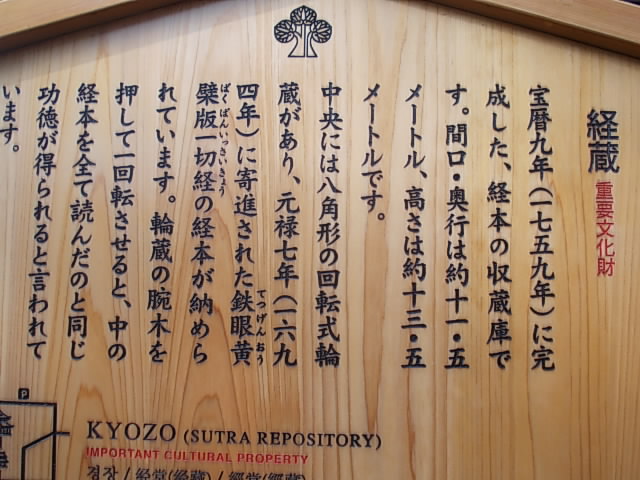 経蔵 重要文化財
宝暦九年（一七五九年）に完
成した、経本の収蔵庫で
す。間口・奥行は約十一・五
メートル、高さは約十三・五
メートルです。
中央には八角形の回転式輪
蔵があり、元禄七年（一六九
四年）に寄進された鉄眼黄
てつげんおう
檗版一切経の経本が納めら
ばくばんいっさいきょう
れています。輪蔵の腕木を
押して一回転させると、中の
経本を全て読んだのと同じ
功徳が得られると言われて
います。
P
KYOZO (SUTRA REPOSITORY)
IMPORTANT CULTURAL PROPERTY
경장 / 经堂(经藏) / 經堂(經藏)